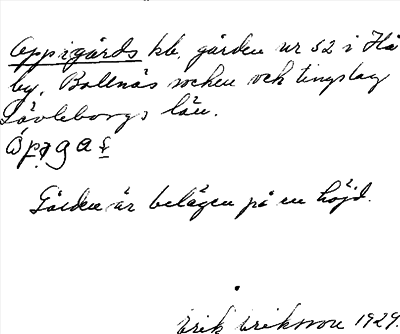 Oppigårds kb, gården nr 52 i Hå
by, Bollnäs socken och tingslag
Gävleborgs län.
Gården är belägen på en höjd.
Erik Eriksson 1929.